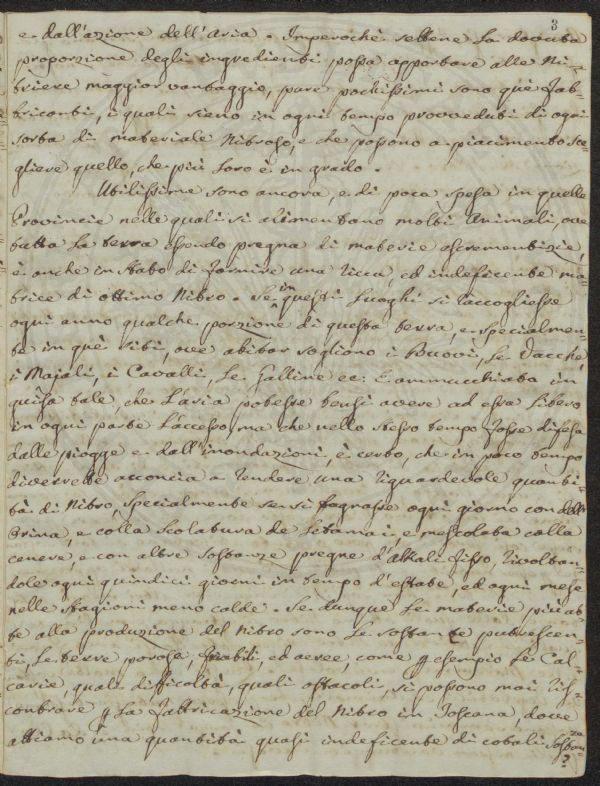 3
e dall'azione dell'Aria. Imperochè sebbene la dovuta
proporzione degli ingredienti possa apportare alle Ni-
triere maggior vantaggio, pure pochissimi sono que' Fab-
bricanti, i quali sieno in ogni tempo provveduti di ogni
sorta di materiale Nitroso, e che possono a piacimento sce-
gliere quello, che più loro è in grado.
Utilissime sono ancora, e di poca spesa in quelle
Provincie nelle quali si alimentano molti Animali, ove
tutta la terra essendo pregna di materie escrementizie,
è anche in stato di fornire una ricca, ed indeficente ma-
trice di ottimo Nitro. Se in questi Luoghi si raccogliesse
ogni anno qualche porzione di questa terra, e specialmen-
te in què siti, ove abitar sogliono i Buovi, le Vacche,
i Majali, i Cavalli, le Galline ec. E ammucchiata in
guisa tale, che l'aria potesse bensì avere ad essa libero
in ogni parte l'accesso, ma che nello stesso tempo fosse difesa
dalle piogge e dall'inondazioni, è certo, che in poco tempo
diverrebbe acconcia a rendere una riguardevole quanti-
tà di Nitro, specialmente se si bagnasse ogni giorno con dell'
Orina, e colla scolatura de Letamai, e mescolata colla
cenere, e con altre sostanze pregne d'Alkali fisso, rivoltan-
dole ogni quindici giorni in tempo d'estate, ed ogni mese
nelle stagioni meno calde. Se dunque le materie più at-
te alla produzione del Nitro sono le sostanze putrescen-
ti, le terre porose, friabili, ed aeree, come p esempio le Cal-
carie, quali difficoltà, quali ostacoli, si possono mai ris-
contrare p la fabbricazione del Nitro in Toscana, dove
abbiamo una quantità quasi indeficente di cotali sostan-
ze?